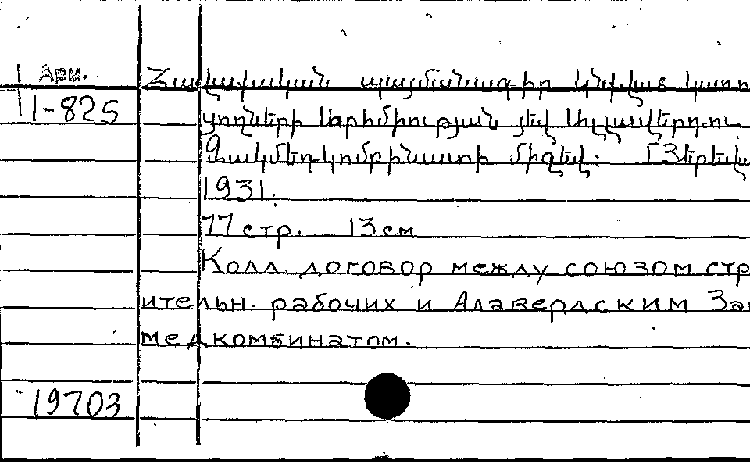 Арм.
1-825
Հավաքական պայմանագիր կնքված կառու
ցողների արհմիության յեվ Ալլավերդու
Զակմեդկոմբինատի միջեվ. [Յերեվա
1931.
77 стр. 13 см
Колл. договор между союзом стр
ительн. рабочих и Алавердским За
медкомбинатом.
19703